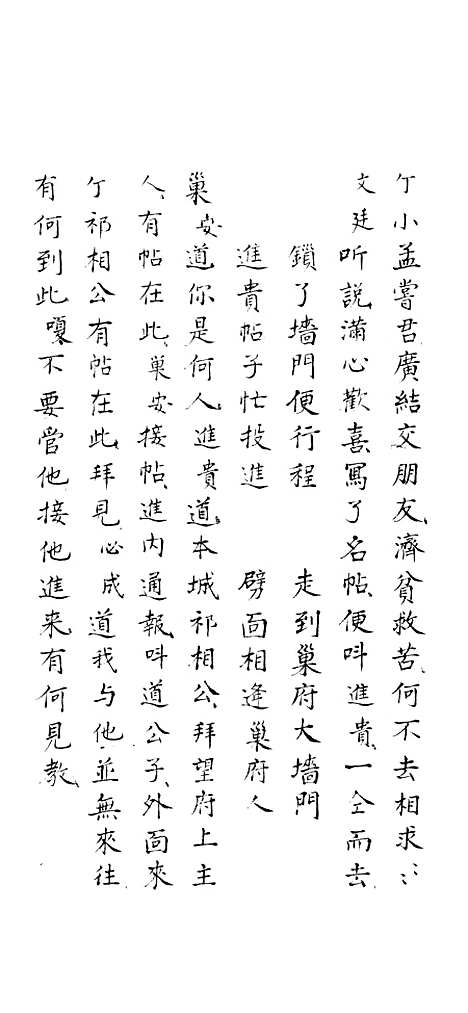 亇小孟嘗君廣結交朋友濟貧救苦何不去相求
文廷听說滿心歡喜寫了名帖便呌進貴一仝而去
鎖了墻門便行程 走到巢府大墻門
進貴帖子忙投進 劈面相逢巢府人
巢安道你是何人進貴道本城祁相公拜望府上主
人有帖在此巢安接帖進內通報呌道公子外面來
亇祁相公有帖在此拜見必成道我与他並無來往
有何到此嗄不要管他接他進來有何見教